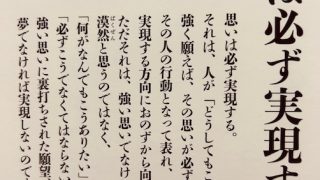 は必ず実現す
思いは必ず実現する。
それは、人が「どうしてもこ
強く願えば、その思いが必ず
その人の行動となって表れ、
実現する方向におのずから向
ただそれは、強い思いでなけ
漠然と思うのではなく、
ばくぜん
「何がなんでもこうありたい」
「必ずこうでなくてはならない
強い思いに裏打ちされた願望、
夢でなければ実現しないので